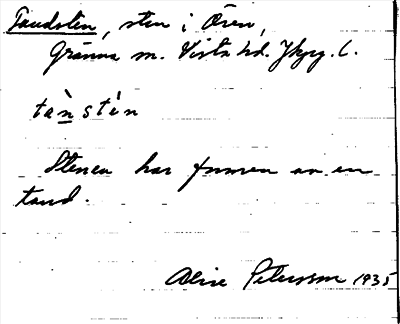 Tandsten, sten i Ören,
Gränna sn. Vista hd. Jkpg. l.
tàn̲stèn
Stenen har formen av en
tand.
Alice Petersson 1935